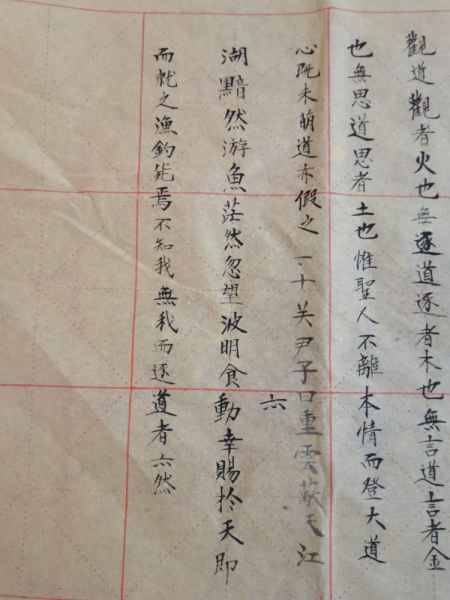 觀道觀者火也無逐道逐者木也無言道言者金
也無思道思者土也惟聖人不離本情而登大道
心既未萌道亦假之 一十关尹子曰重雲蔽天江
六
湖黯然游魚茫然忽望波明食動幸賜於天即
而就之漁釣毙焉不知我無我而逐道者亦然